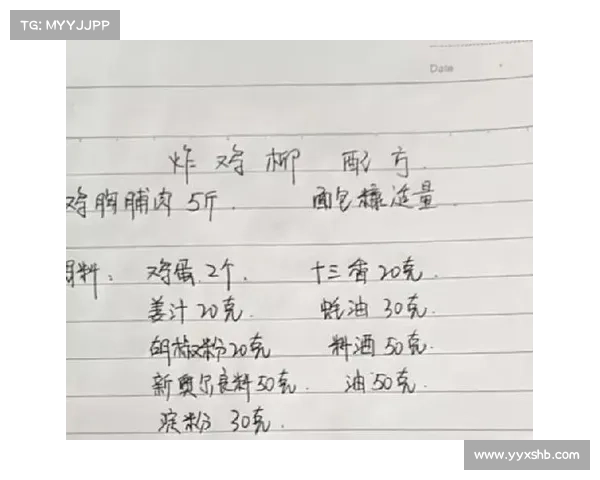 TG: MYYJJPP
Date
炸鸡柳 配方
鸡胸脯肉 5斤. 面包糠适量
用料: 鸡蛋 2个. 十三香 20克.
姜汁 20克. 蚝油 30克.
胡椒粉 20克 料酒 50克.
新奥尔良料 50克. 油 50克.
淀粉 30克.
www.yyxshb.com